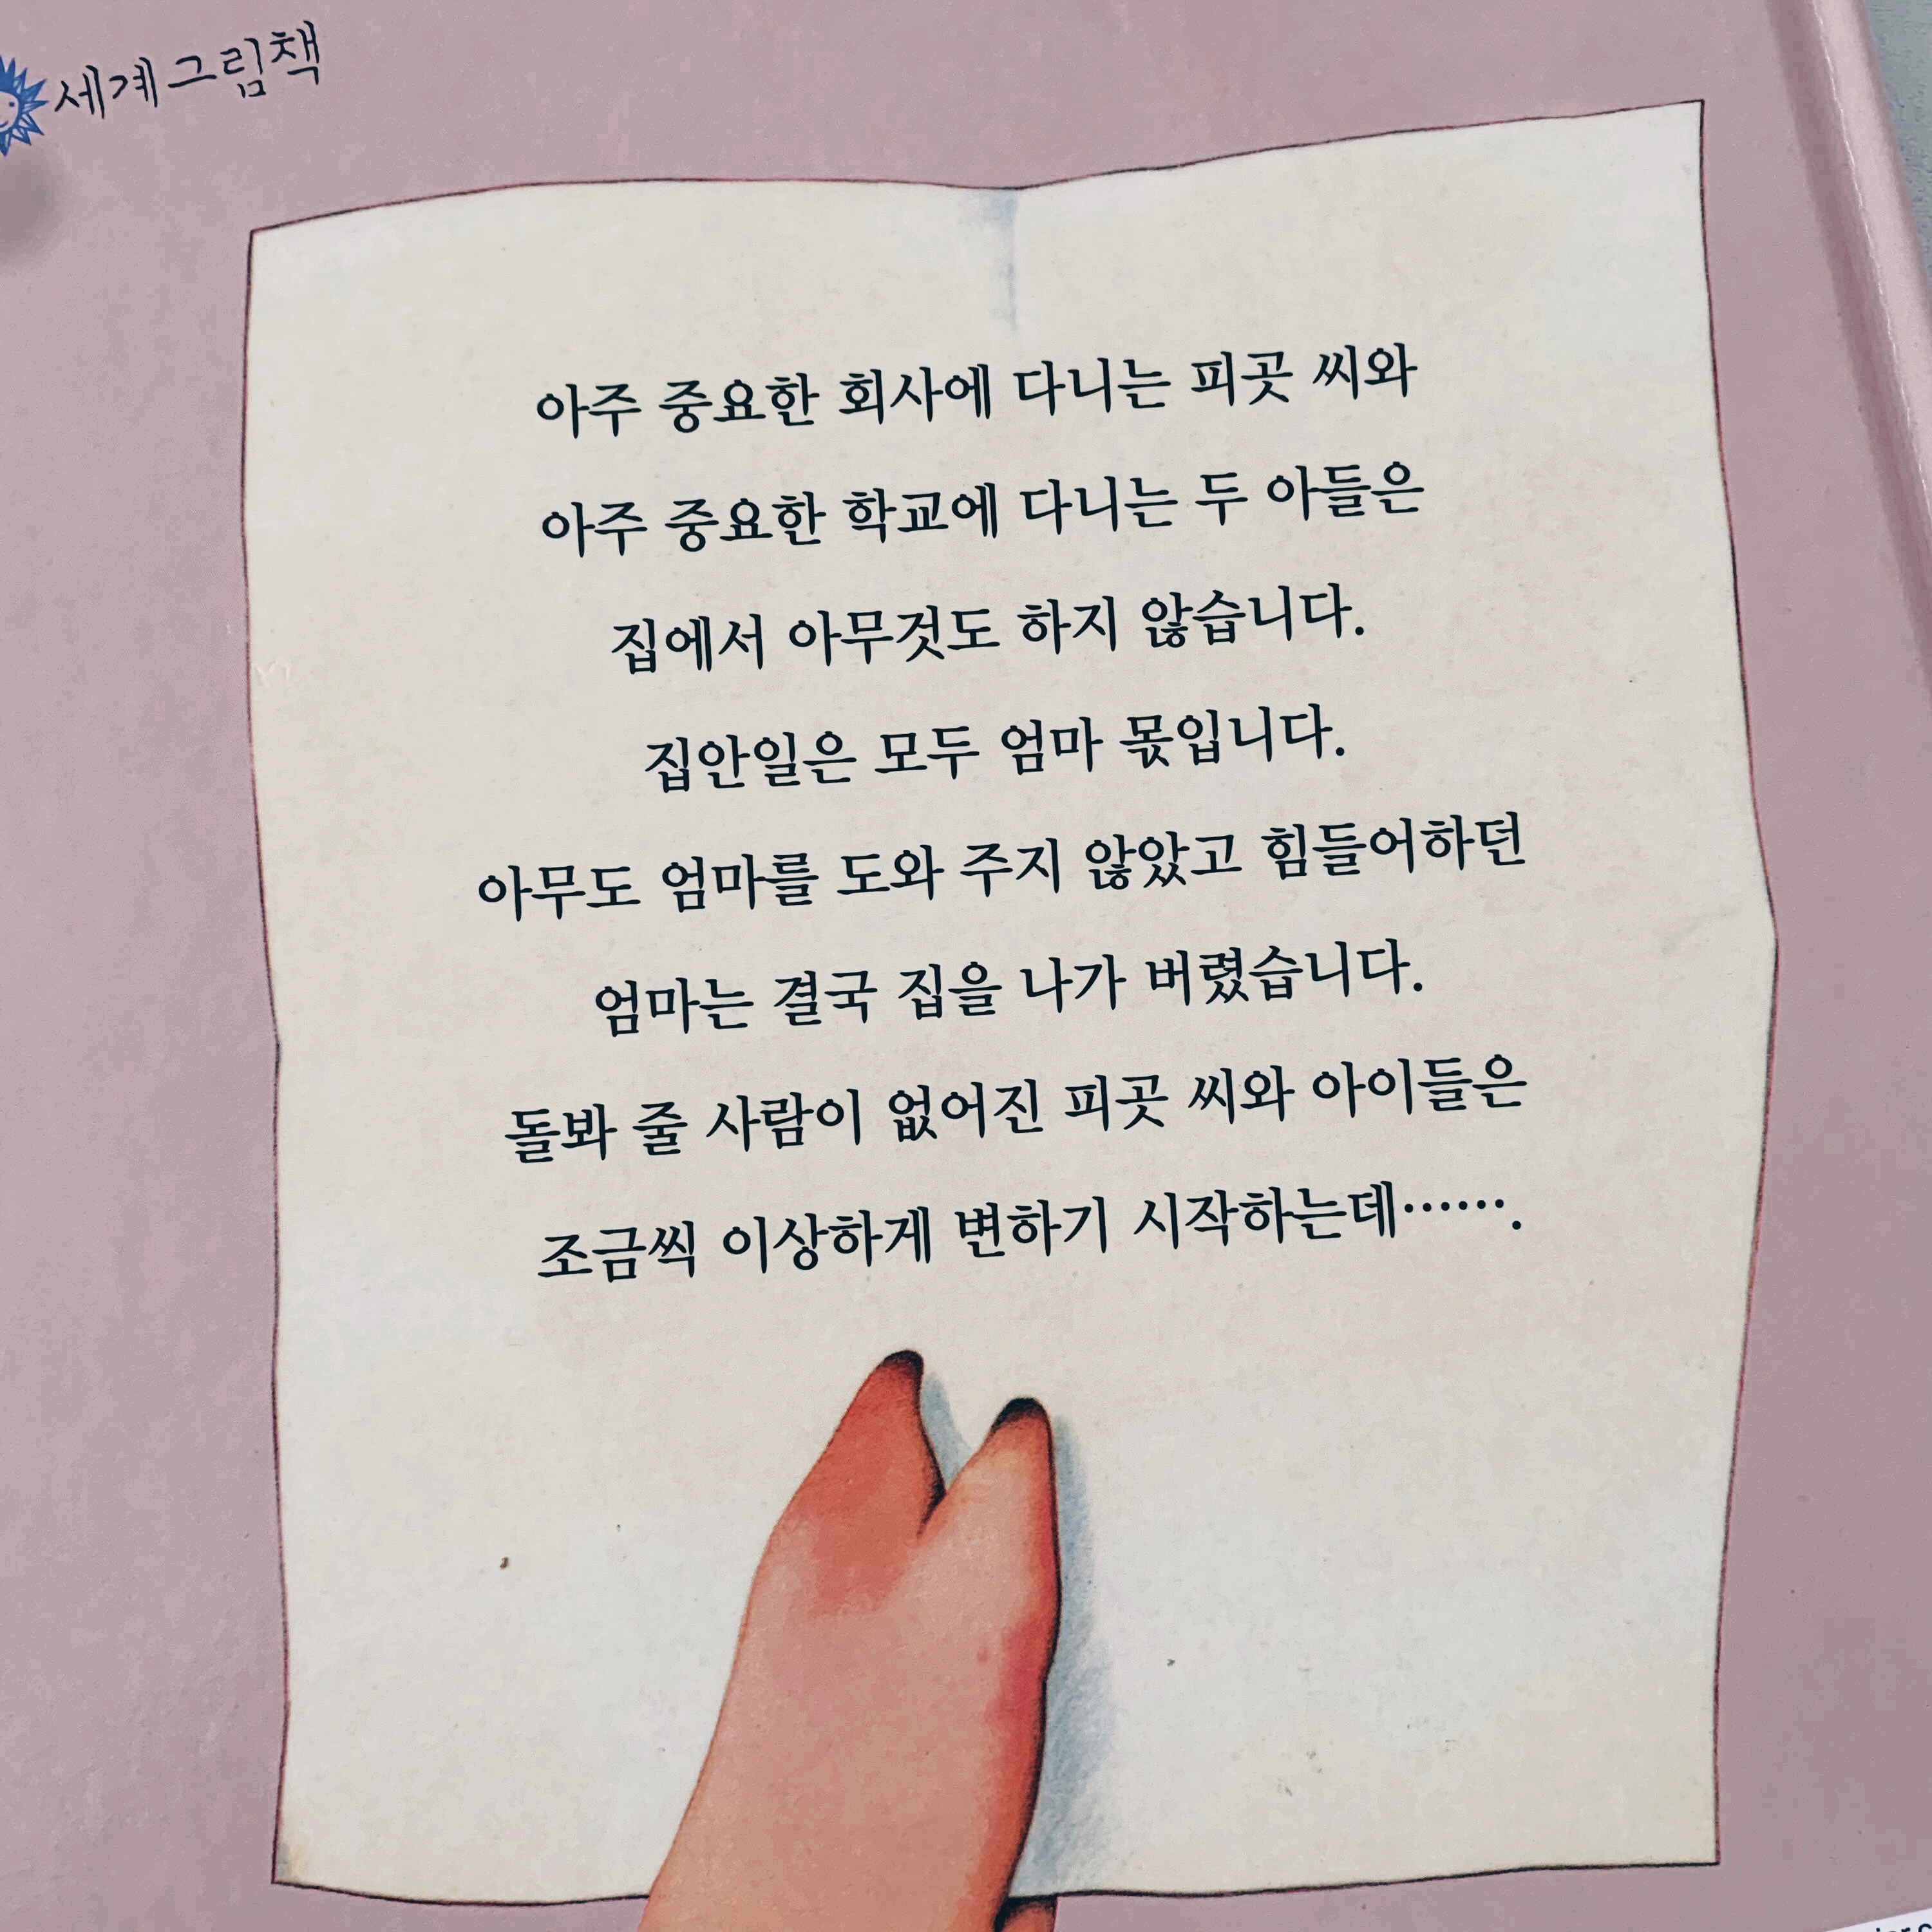 세계그림책
아주 중요한 회사에 다니는 피곳 씨와
아주 중요한 학교에 다니는 두 아들은
집에서 아무것도 하지 않습니다.
집안일은 모두 엄마 몫입니다.
아무도 엄마를 도와 주지 않았고 힘들어하던
엄마는 결국 집을 나가 버렸습니다.
돌봐 줄 사람이 없어진 피곳 씨와 아이들은
조금씩 이상하게 변하기 시작하는데…….